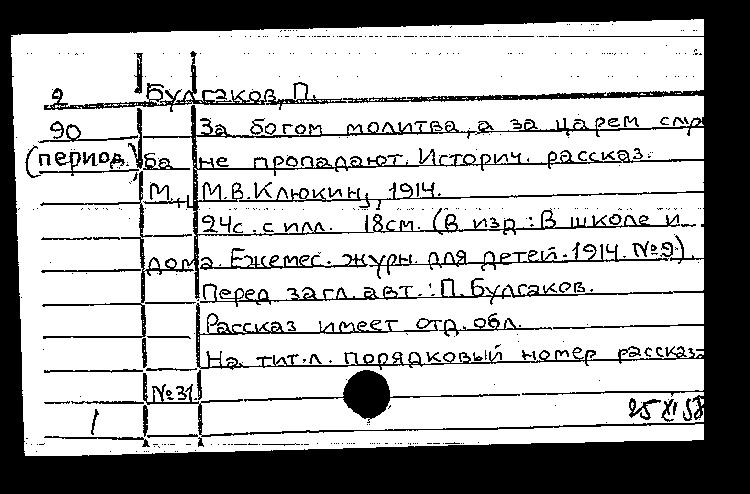 9 Булгаков, П.
90 За богом молитва, а за царем служ
(период.) ба не пропадают. Историч. рассказ.
М., М.В. Клюкин, 1914.
24с. с илл. 18см. (В изд: В школе и
дома. Ежемес. журн. для детей. 1914. №9).
Перед загл. авт.: П. Булгаков.
Рассказ имеет отд. обл.
На тит. л. порядковый номер рассказа
№31.
1 25 XI 58